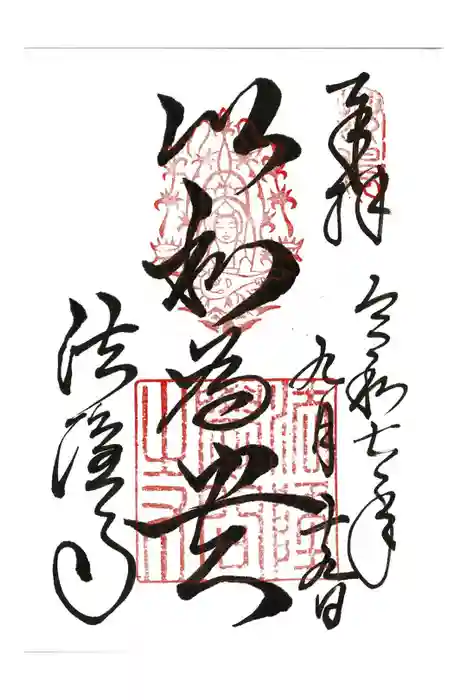 奉拝
令和七年
九月二十九日
以和為貴
法隆寺